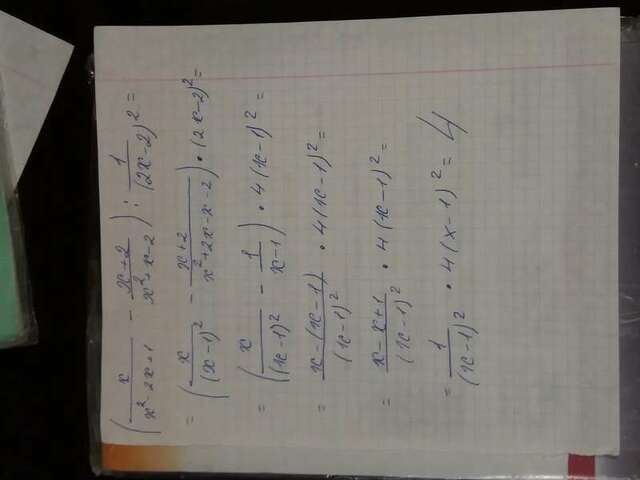 (x/(x²-2x+1) - (x+2)/(x²+x-2)) : 1/(2x-2)² =
= (x/(x-1)² - (x+2)/(x²+2x-x-2)) · (2x-2)² =
= (x/(x-1)² - 1/(x-1)) · 4(x-1)² =
= (x-(x-1))/(x-1)² · 4(x-1)² =
= (x-x+1)/(x-1)² · 4(x-1)² =
= 1/(x-1)² · 4(x-1)² = 4